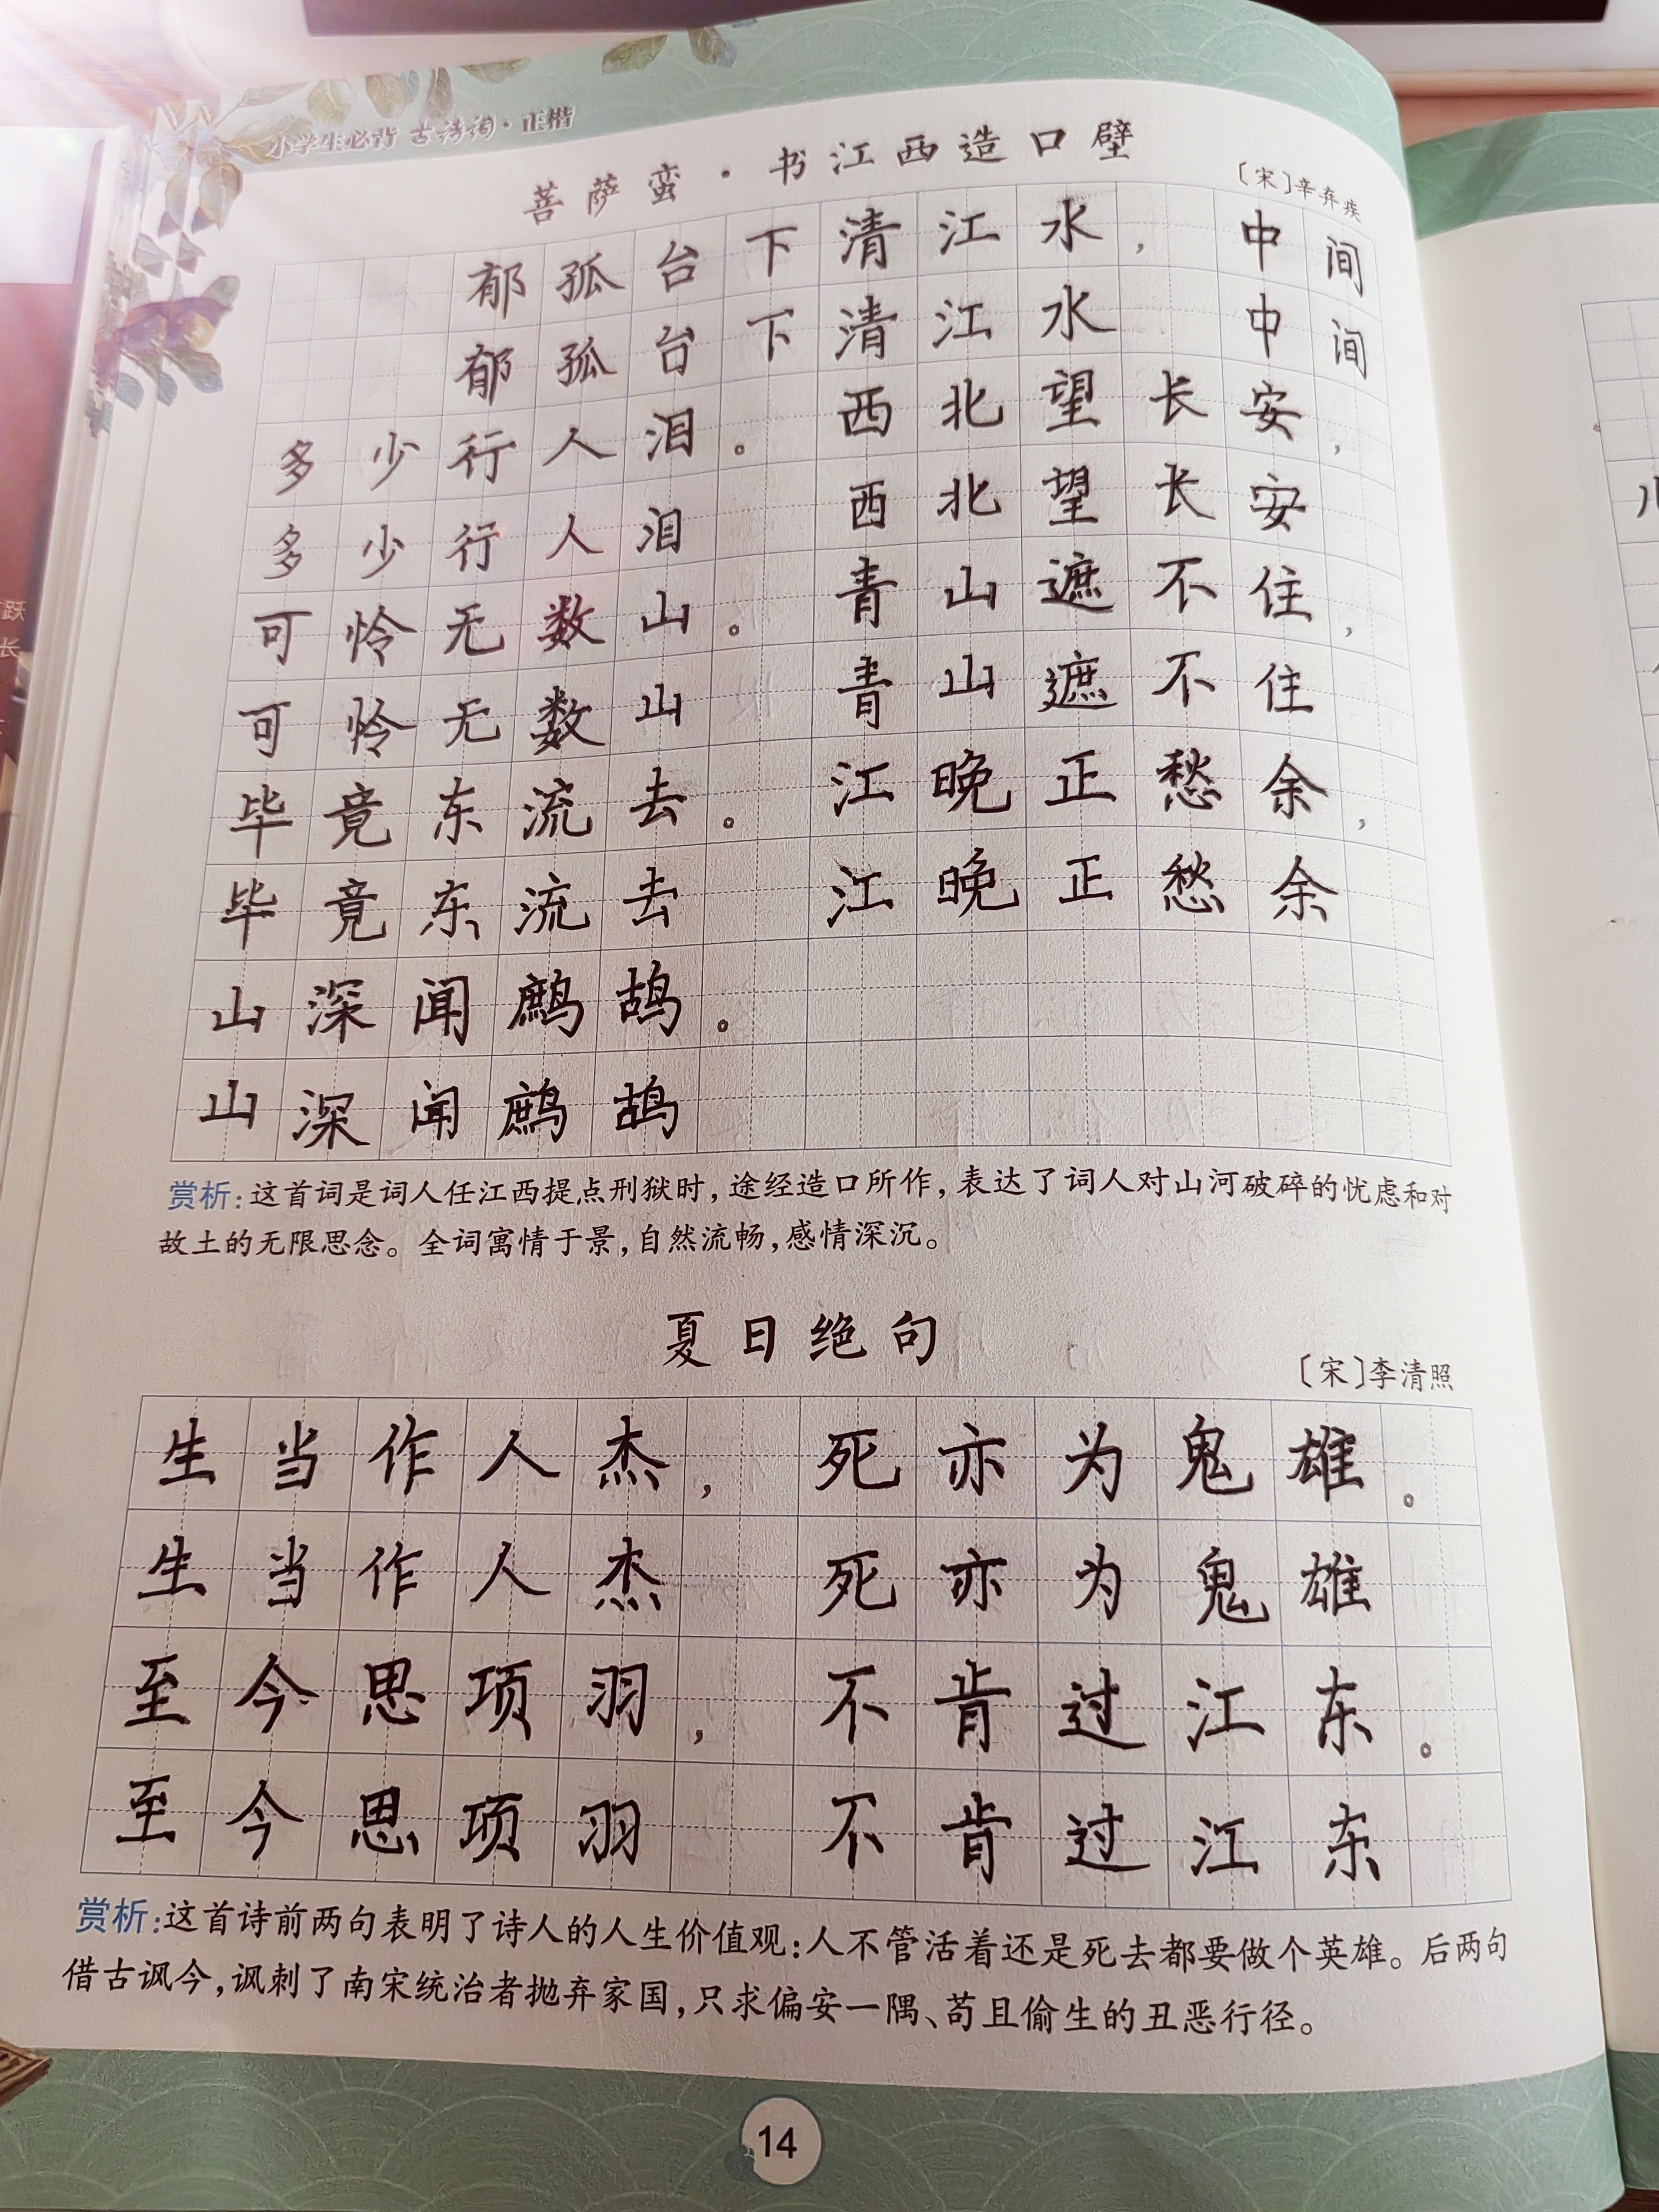 小学生必背 古诗词·正楷
菩萨蛮·书江西造口壁
〔宋〕辛弃疾
郁孤台下清江水，中间
郁孤台下清江水 中间
多少行人泪。西北望长安，
多少行人泪 西北望长安
可怜无数山。青山遮不住，
可怜无数山 青山遮不住
毕竟东流去。江晚正愁余，
毕竟东流去 江晚正愁余
山深闻鹧鸪。
山深闻鹧鸪
赏析：这首词是词人任江西提点刑狱时，途经造口所作，表达了词人对山河破碎的忧虑和对
故土的无限思念。全词寓情于景，自然流畅，感情深沉。
夏日绝句
〔宋〕李清照
生当作人杰，死亦为鬼雄。
生当作人杰 死亦为鬼雄
至今思项羽，不肯过江东。
至今思项羽 不肯过江东
赏析：这首诗前两句表明了诗人的人生价值观：人不管活着还是死去都要做个英雄。后两句
借古讽今，讽刺了南宋统治者抛弃家国，只求偏安一隅、苟且偷生的丑恶行径。
14
跃
长